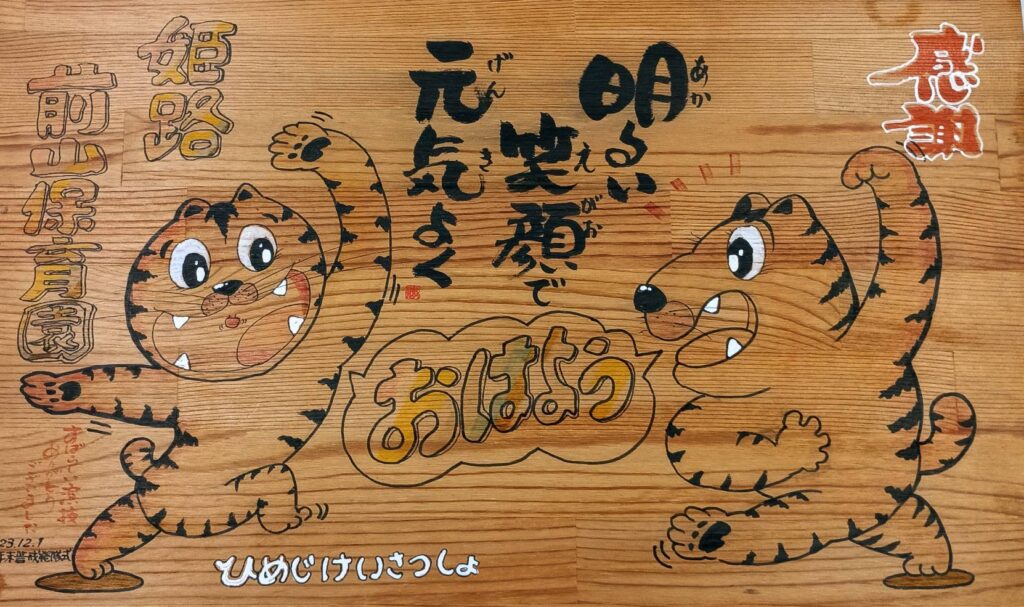 感謝
明るい
あか
笑顔で
えがお
元気よく
げんき
おはよう
姫路
前山保育園
ひめじけいさつしょ
23.12.1
年末警戒発隊式